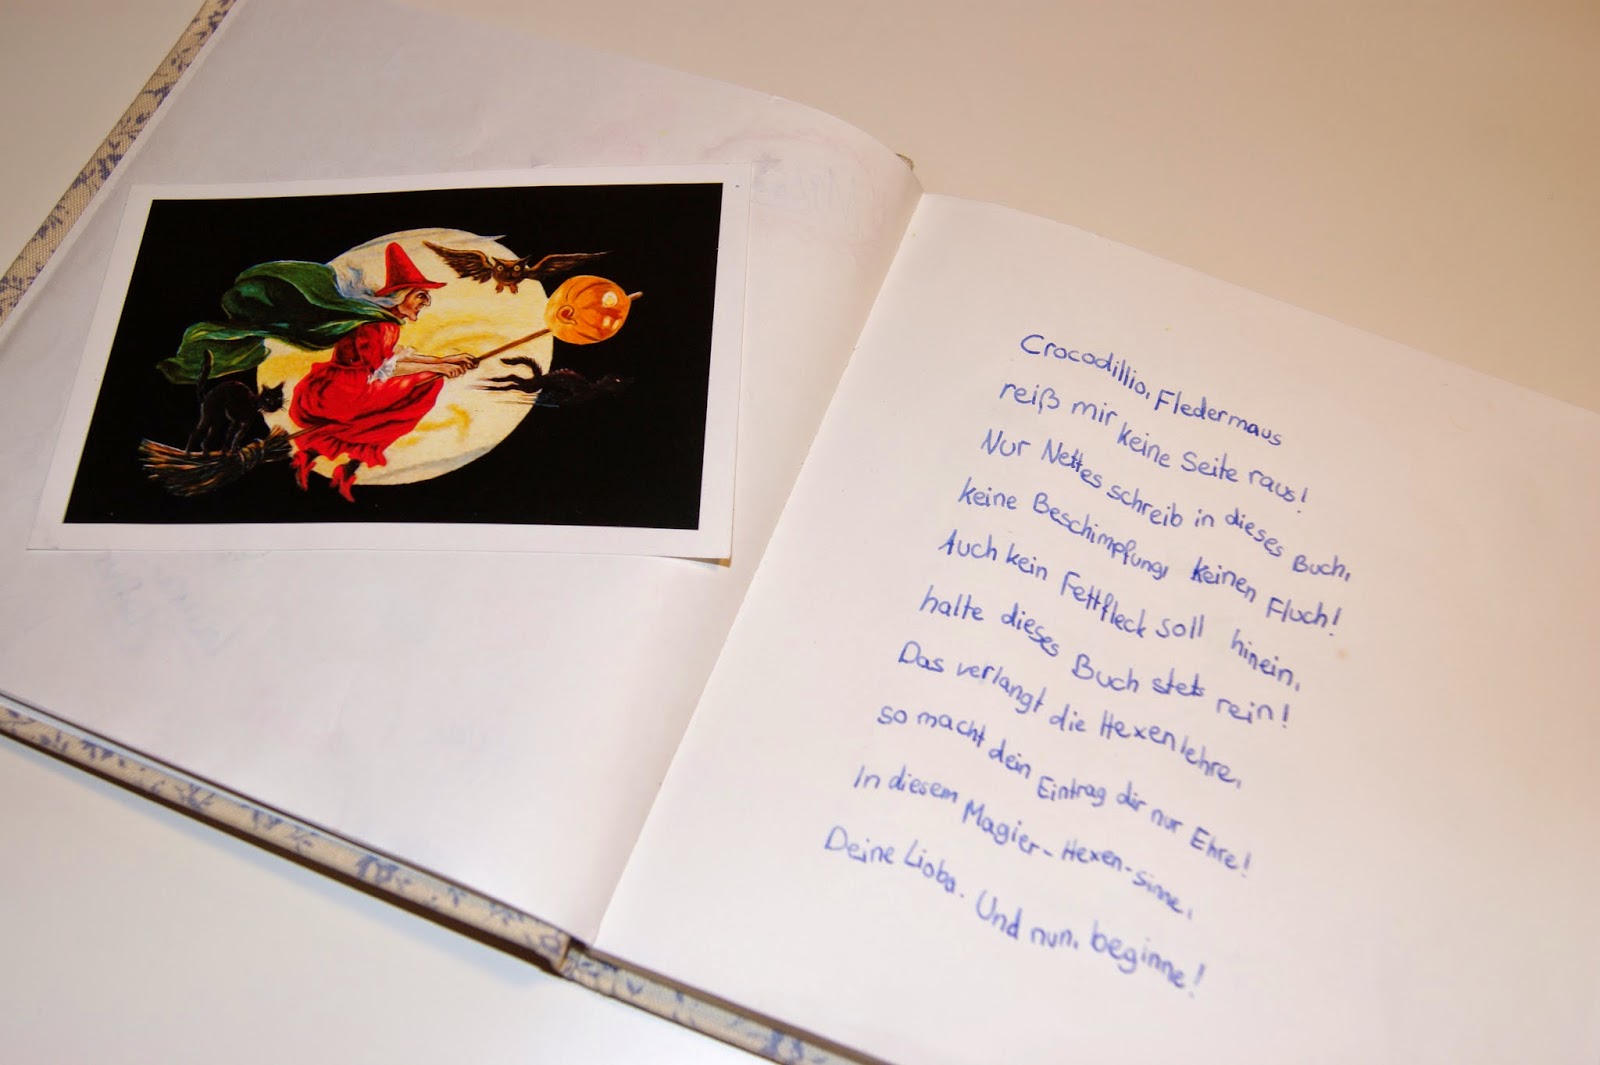 Crocodillio, Fledermaus
reiß mir keine Seite raus!
Nur Nettes schreib in dieses Buch,
keine Beschimpfung, keinen Fluch!
Auch kein Fettfleck soll hinein,
halte dieses Buch stets rein!
Das verlangt die Hexenlehre,
so macht dein Eintrag dir nur Ehre!
In diesem Magier-Hexen-sinne,
Deine Lioba. Und nun, beginne!